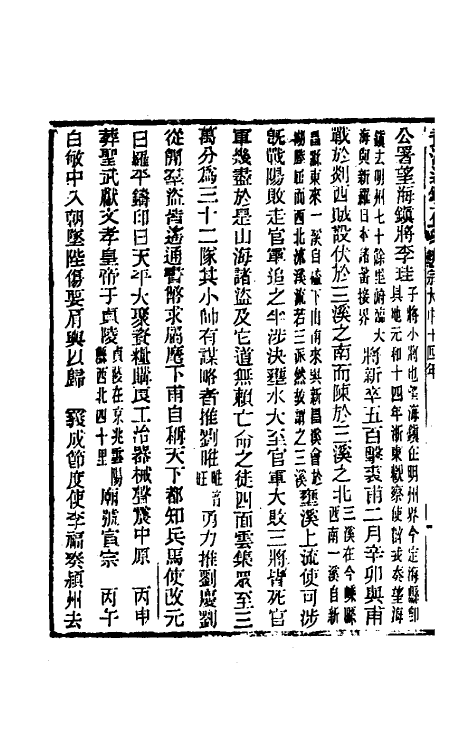 公署望海鎮將李珪子將小將也望海鎮在明州界今定海縣卽其地元和十四年浙東觀察使薛戎奏望海
鎮去明州七十餘里俯臨大海與新羅日本諸蕃接界將新卒五百擊裘甫二月辛卯與甫
戰於剡西賊設伏於三溪之南而陳於三溪之北三溪在今嵊縣西南一溪自新
昌縣東來一溪自磕下山南來與新昌溪會於而西北流溪流若三派然故謂之三溪壅溪上流使可涉
旣戰陽敗走官軍追之半涉決壅水大至官軍大敗三將皆死官
軍幾盡於是山海諸盜及它道無賴亡命之徒四面雲集衆至三
萬分爲三十二隊其小帥有謀略者推劉暀暀音旺勇力推劉慶劉
從簡羣盜皆遙通書幣求屬麾下甫自稱天下都知兵馬使改元
曰羅平鑄印曰天平大聚資糧購良工治器械聲震中原 丙申
葬聖武獻文孝皇帝于貞陵貞陵在京兆雲陽縣西北四十里廟號宣宗 丙午
白敏中入朝墜陛傷要肩輿以歸 義成節度使李福奏潁州去